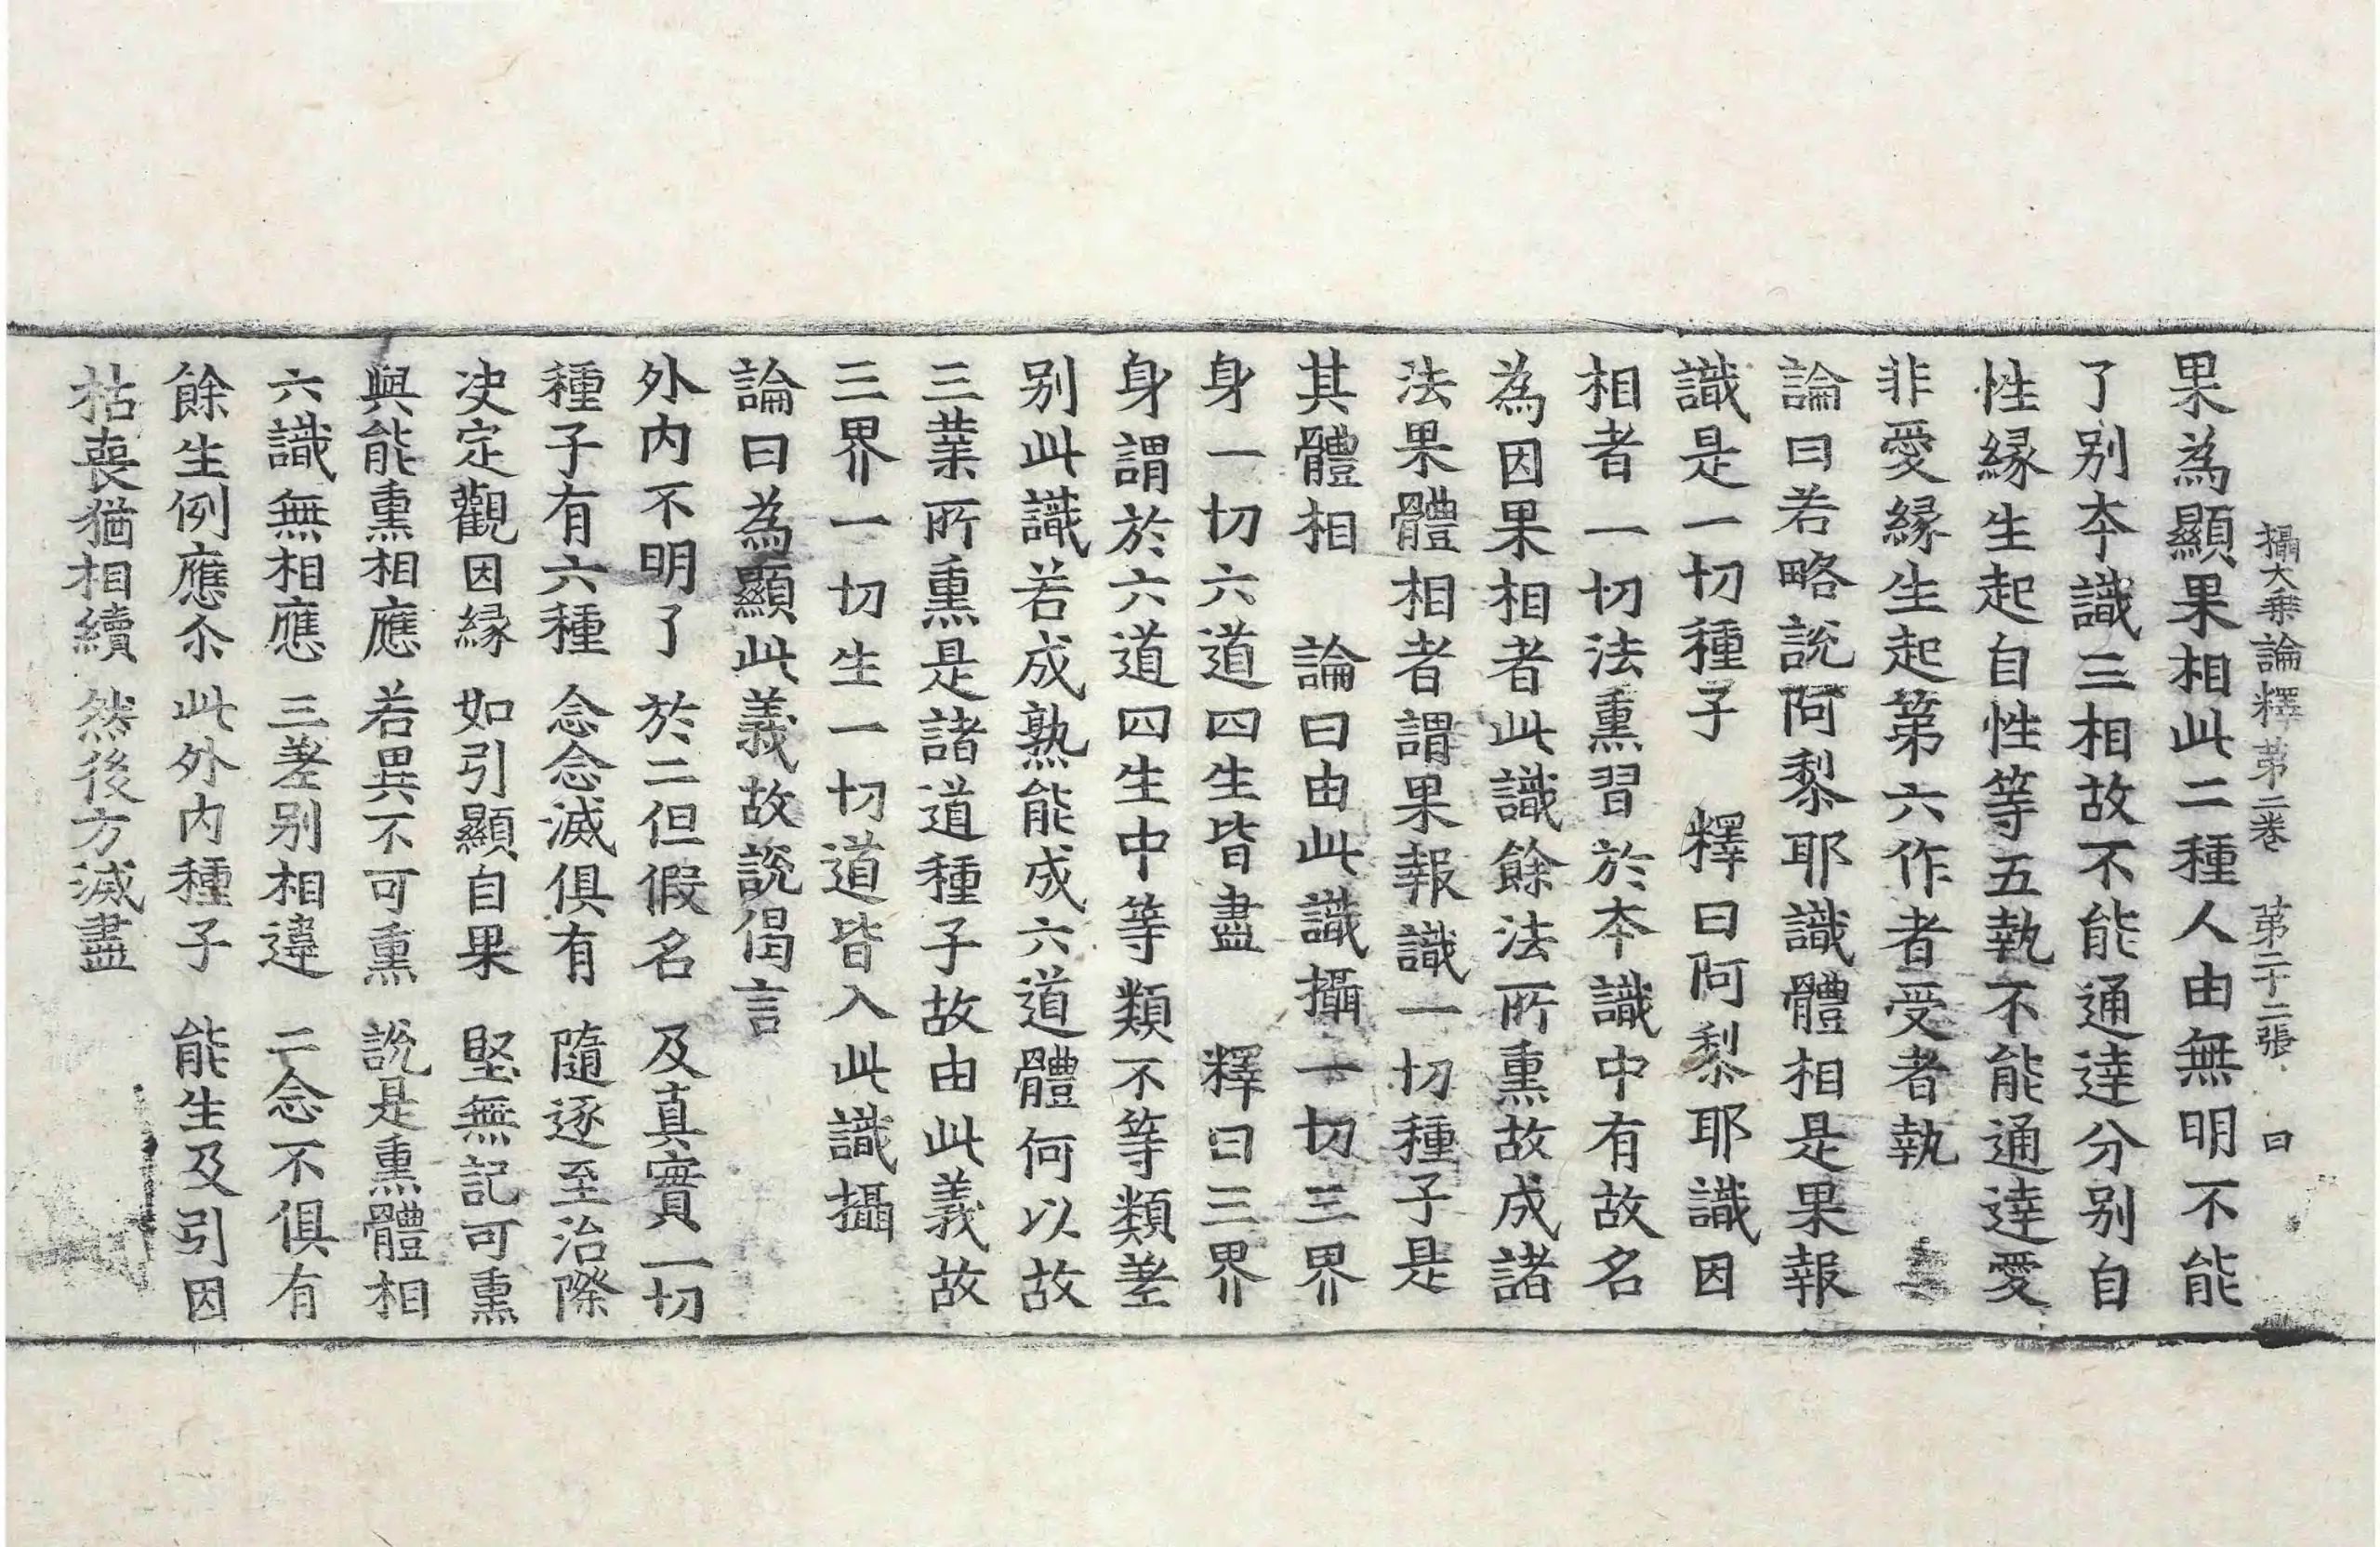 攝大乗論釋第二卷 第二十二張 曰
果為顯果相此二種人由無明不能
了别夲識三相故不能通達分别自
性縁生起自性等五執不能通達愛
非愛縁生起第六作者受者執
論曰若略說阿梨耶識體相是果報
識是一切種子 釋曰阿梨耶識因
相者一切法熏習於夲識中有故名
為因果相者此識餘法所熏故成諸
法果體相者謂果報識一切種子是
其體相 論曰由此識攝一切三界
身一切六道四生皆盡 釋曰三界
身謂於六道四生中等類不等類差
别此識若成熟能成六道體何以故
三業所熏是諸道種子故由此義故
三界一切生一切道皆入此識攝
論曰為顯此義故說偈言
外内不明了 於二但假名 及真實一切
種子有六種 念念滅俱有 隨逐至治際
决定觀因縁 如引顯自果 堅無記可熏
與能熏相應 若異不可熏 說是熏體相
六識無相應 三差别相違 二念不俱有
餘生例應尒 此外内種子 能生及引因
枯喪猶相續 然後方滅盡